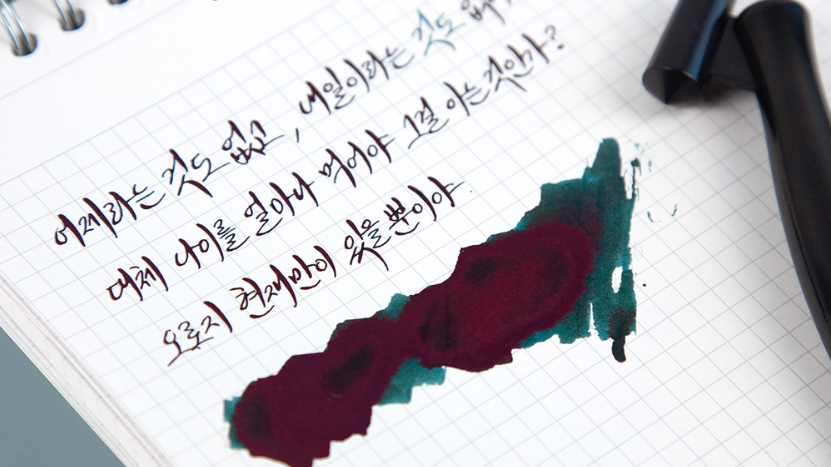 어제라는 것도 없고, 내일이라는 것도
대체 나이를 얼마나 먹어야 그걸 아는 것인가?
오로지 현재만이 있을 뿐이야